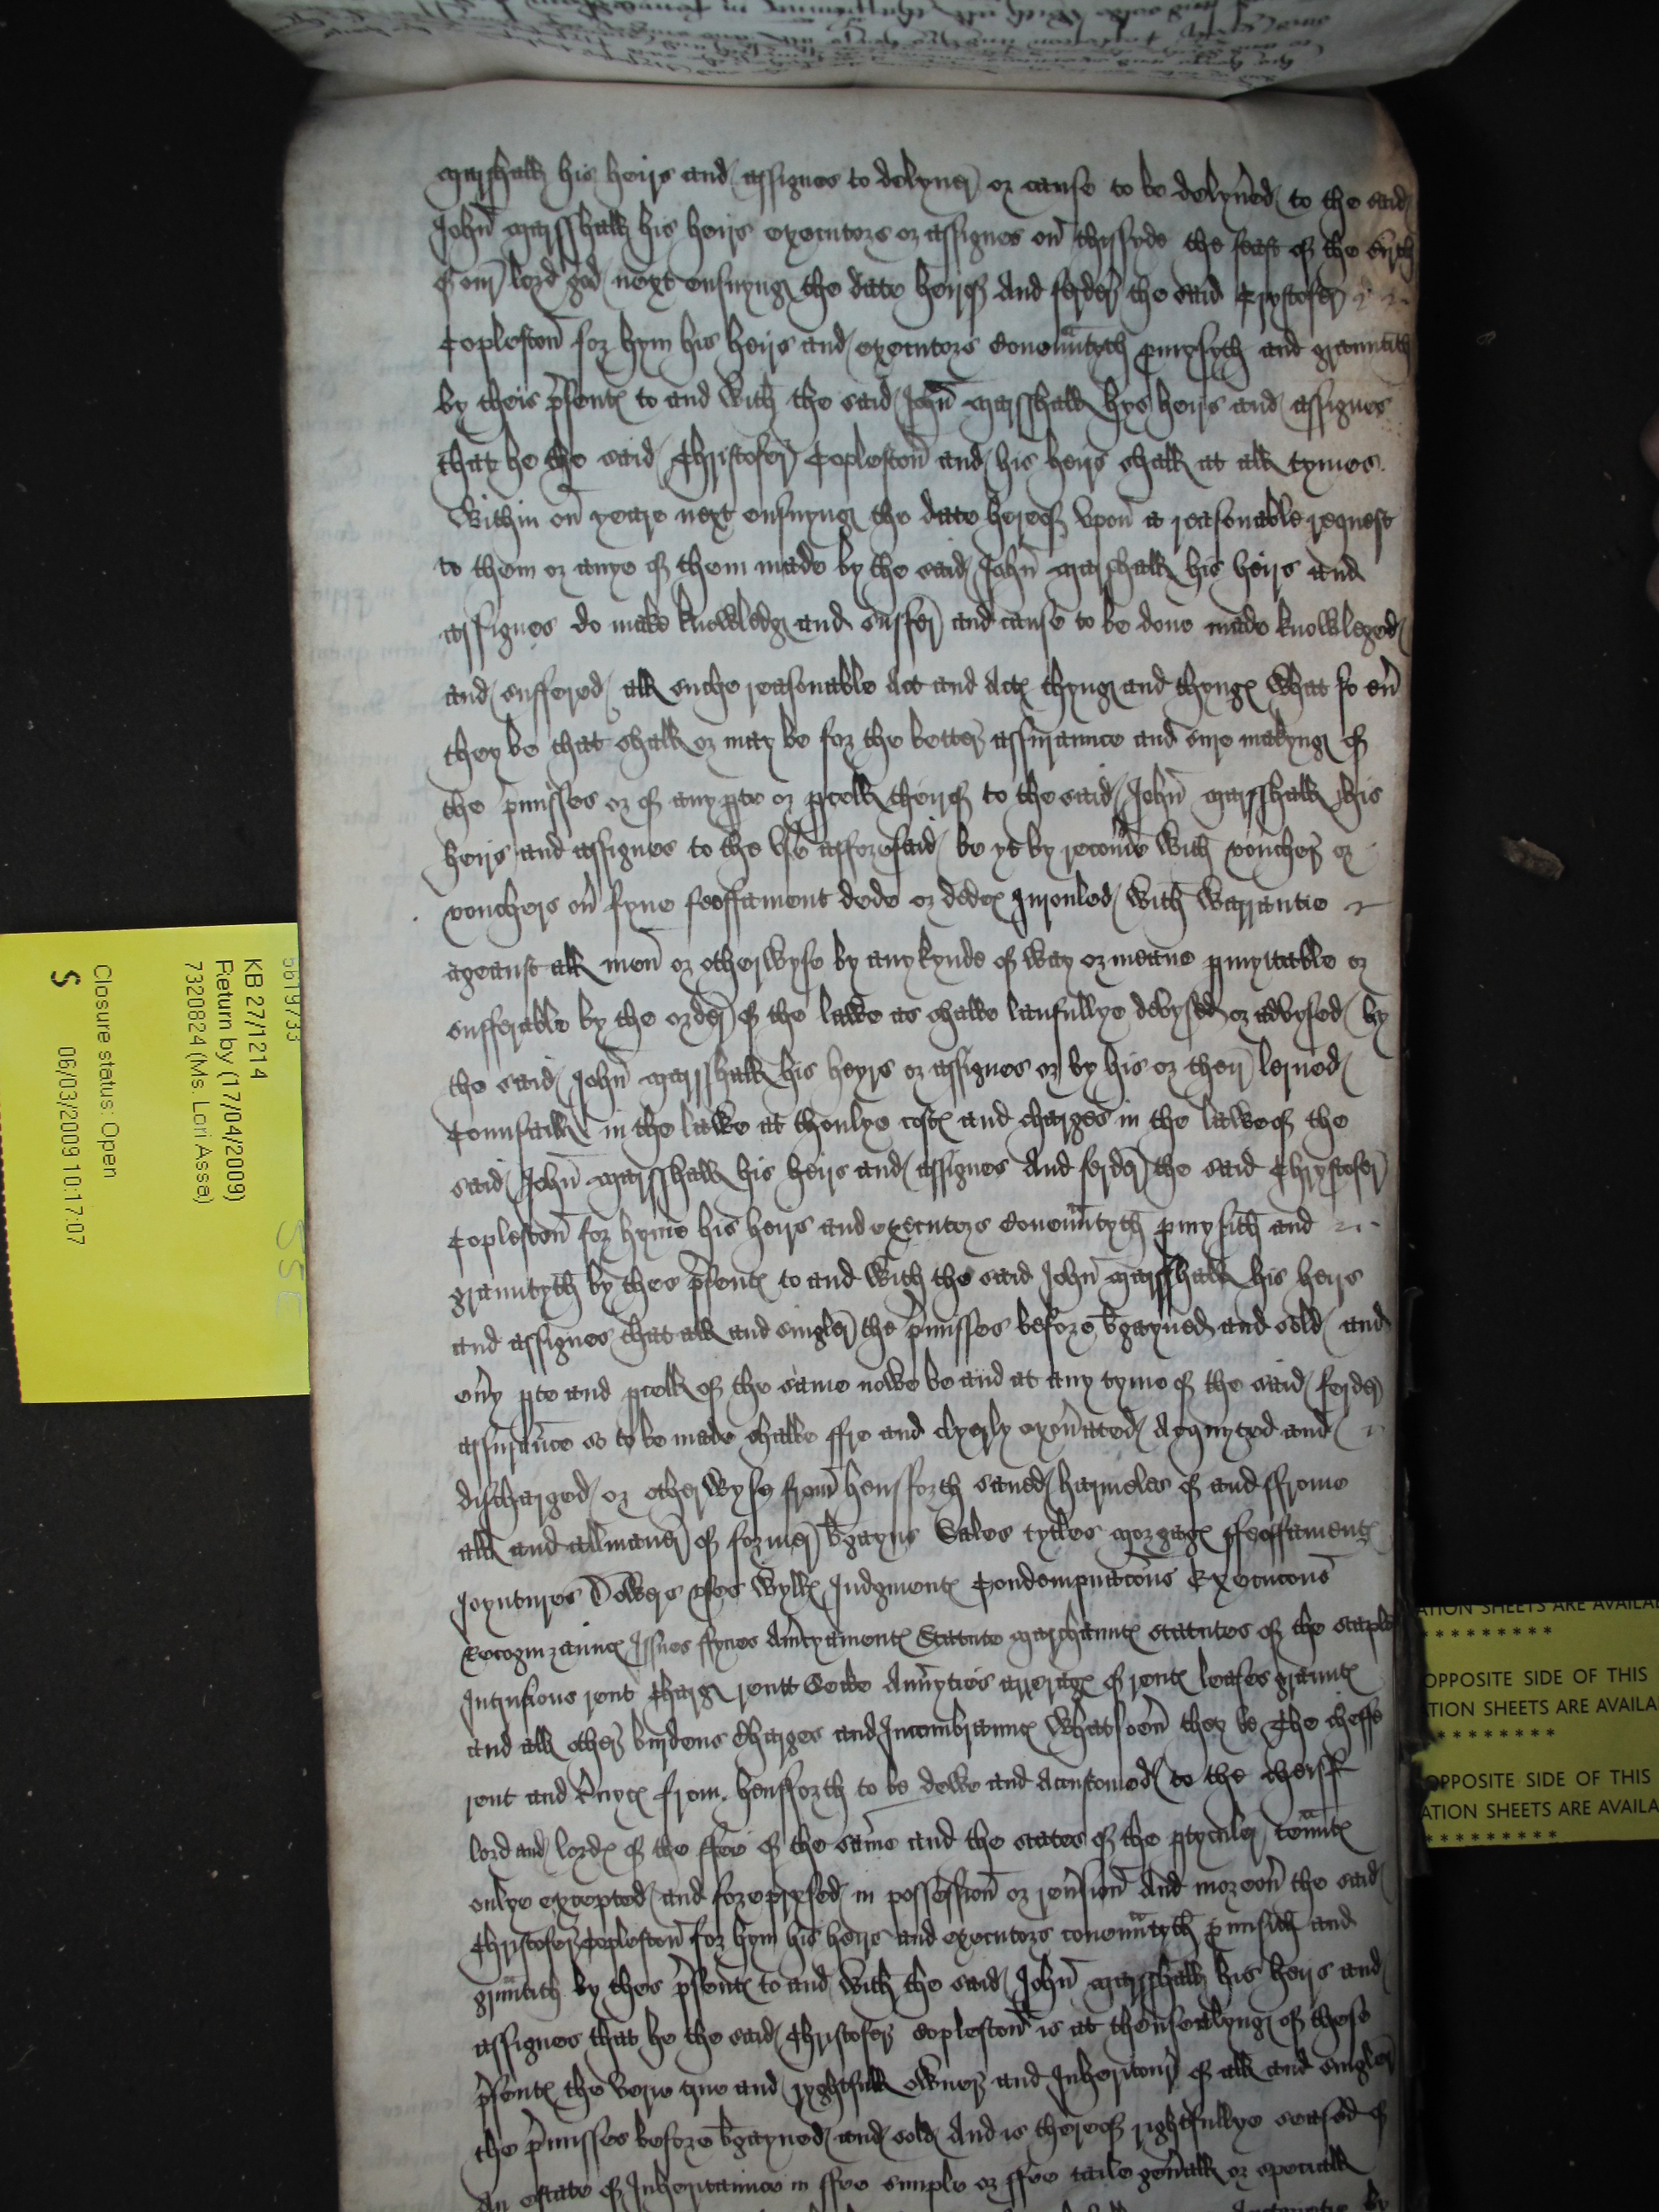 marshall his heirs and assignes to delyuer or cause to be delyued to the said
John marsshall his heirs executors or assignes on thysyde the feast of the birth
of our lord god next ensuyng the date herof And ferder the said Crystofer
Copleston for hym his heirs and executors Couenntyth pmysyth and grauntith
by theis psentes to and with the said John marsshall hys heirs and assignes
that he the said Christofer Copleston and his heirs shall at all tymes
Within on yeare next ensuyng the date hereof vpon a reasonable request
to them or anye of them made by the said John marshall his heirs and
assignes do make knowledg and suffer and cause to be done made knowleged
and suffered all suche reasonable Act and Actes thyng and thynges What so eu
they be that shall or may be for the better assuraunce and sure makyng of
the pmisses or of any pte or pcell therof to the said John marsshall his
heirs and assignes to the vse aforesaid be yt by recouie With voucher or
vouchers ou fyne feoffament dede or dedes Inrouled With Warrantie
ageanst all men or otherwyse by any kynde of way or meane pmyttable or
sufferable by the order of the lawe as shalbe laufullye devysed or advysed by
the said John marsshall his heyrs or assignes or by his or ther lerned
Counsaill in the lawe at thonlye costes and charges in the lawe of the
said John marsshall his heirs and assignes And ferder the said Chrystofer
Copleston for hyme his heirs and executors Couenntyth pmysith and
grauntyth by thes psentes to and With the said John marsshall his heirs
and assignes that all and singler the pmisses before bgayned and sold and
euy pte and pcell of the same nowe be and at any tyme of the said ferder
assuraunce so to be made shalbe ffre and clyerly exonated Acquyted and
discharged or otherwyse from hensforth saued harmeles of and ffrome
all and all maner of former bgayns Sales tytles morgages ffeoffamentes
Joyntures Dowers vses Wylles Judgmentes Condempnacons Executons
Recognizaunces Issues ffynes Amcyamentes Statute marchauntes statutes of the staple
Intrusions rent Charg rentt Secke Annyties arrerages of rentes leases grauntes
and all other burdens Charges and Incumbraunces Whatsoeu they be The cheffe
rent and suyces from hensfforth to be dewe and Accustomed to the cheiff
lord and lordes of the ffee of the same and the states of the ptyculer tenntes
onlye excepted and foreprysed in possession or reusion And moreou the said
Christofer Copleston for hym his heirs and executors couenntyth pmisith and
grantith by thes psentes to and With the said John marsshall his heirs and
assignes that he the said Christofer Copleston is at thensealyng of these
psentes the verie true and ryghtfull owner and Inheritour of all and singler
the pmisses before bgayned and sold And is thereof rightfullye seased of
An estate of Inheritaunce in ffee simple or ffee taile genall or speciall
5619733
KB 27/1214
Return by (17/04/2009)
7320824 (Ms. Lori Asse)
Closure status: Open
S 06/03/2009 10:17:07
ATION SHEETS ARE AVAILA
* * * * * * * * * *
OPPOSITE SIDE OF THIS
ATION SHEETS ARE AVAILA
* * * * * * * * * *
OPPOSITE SIDE OF THIS
ATION SHEETS ARE AVAILA
* * * * * * * * * *